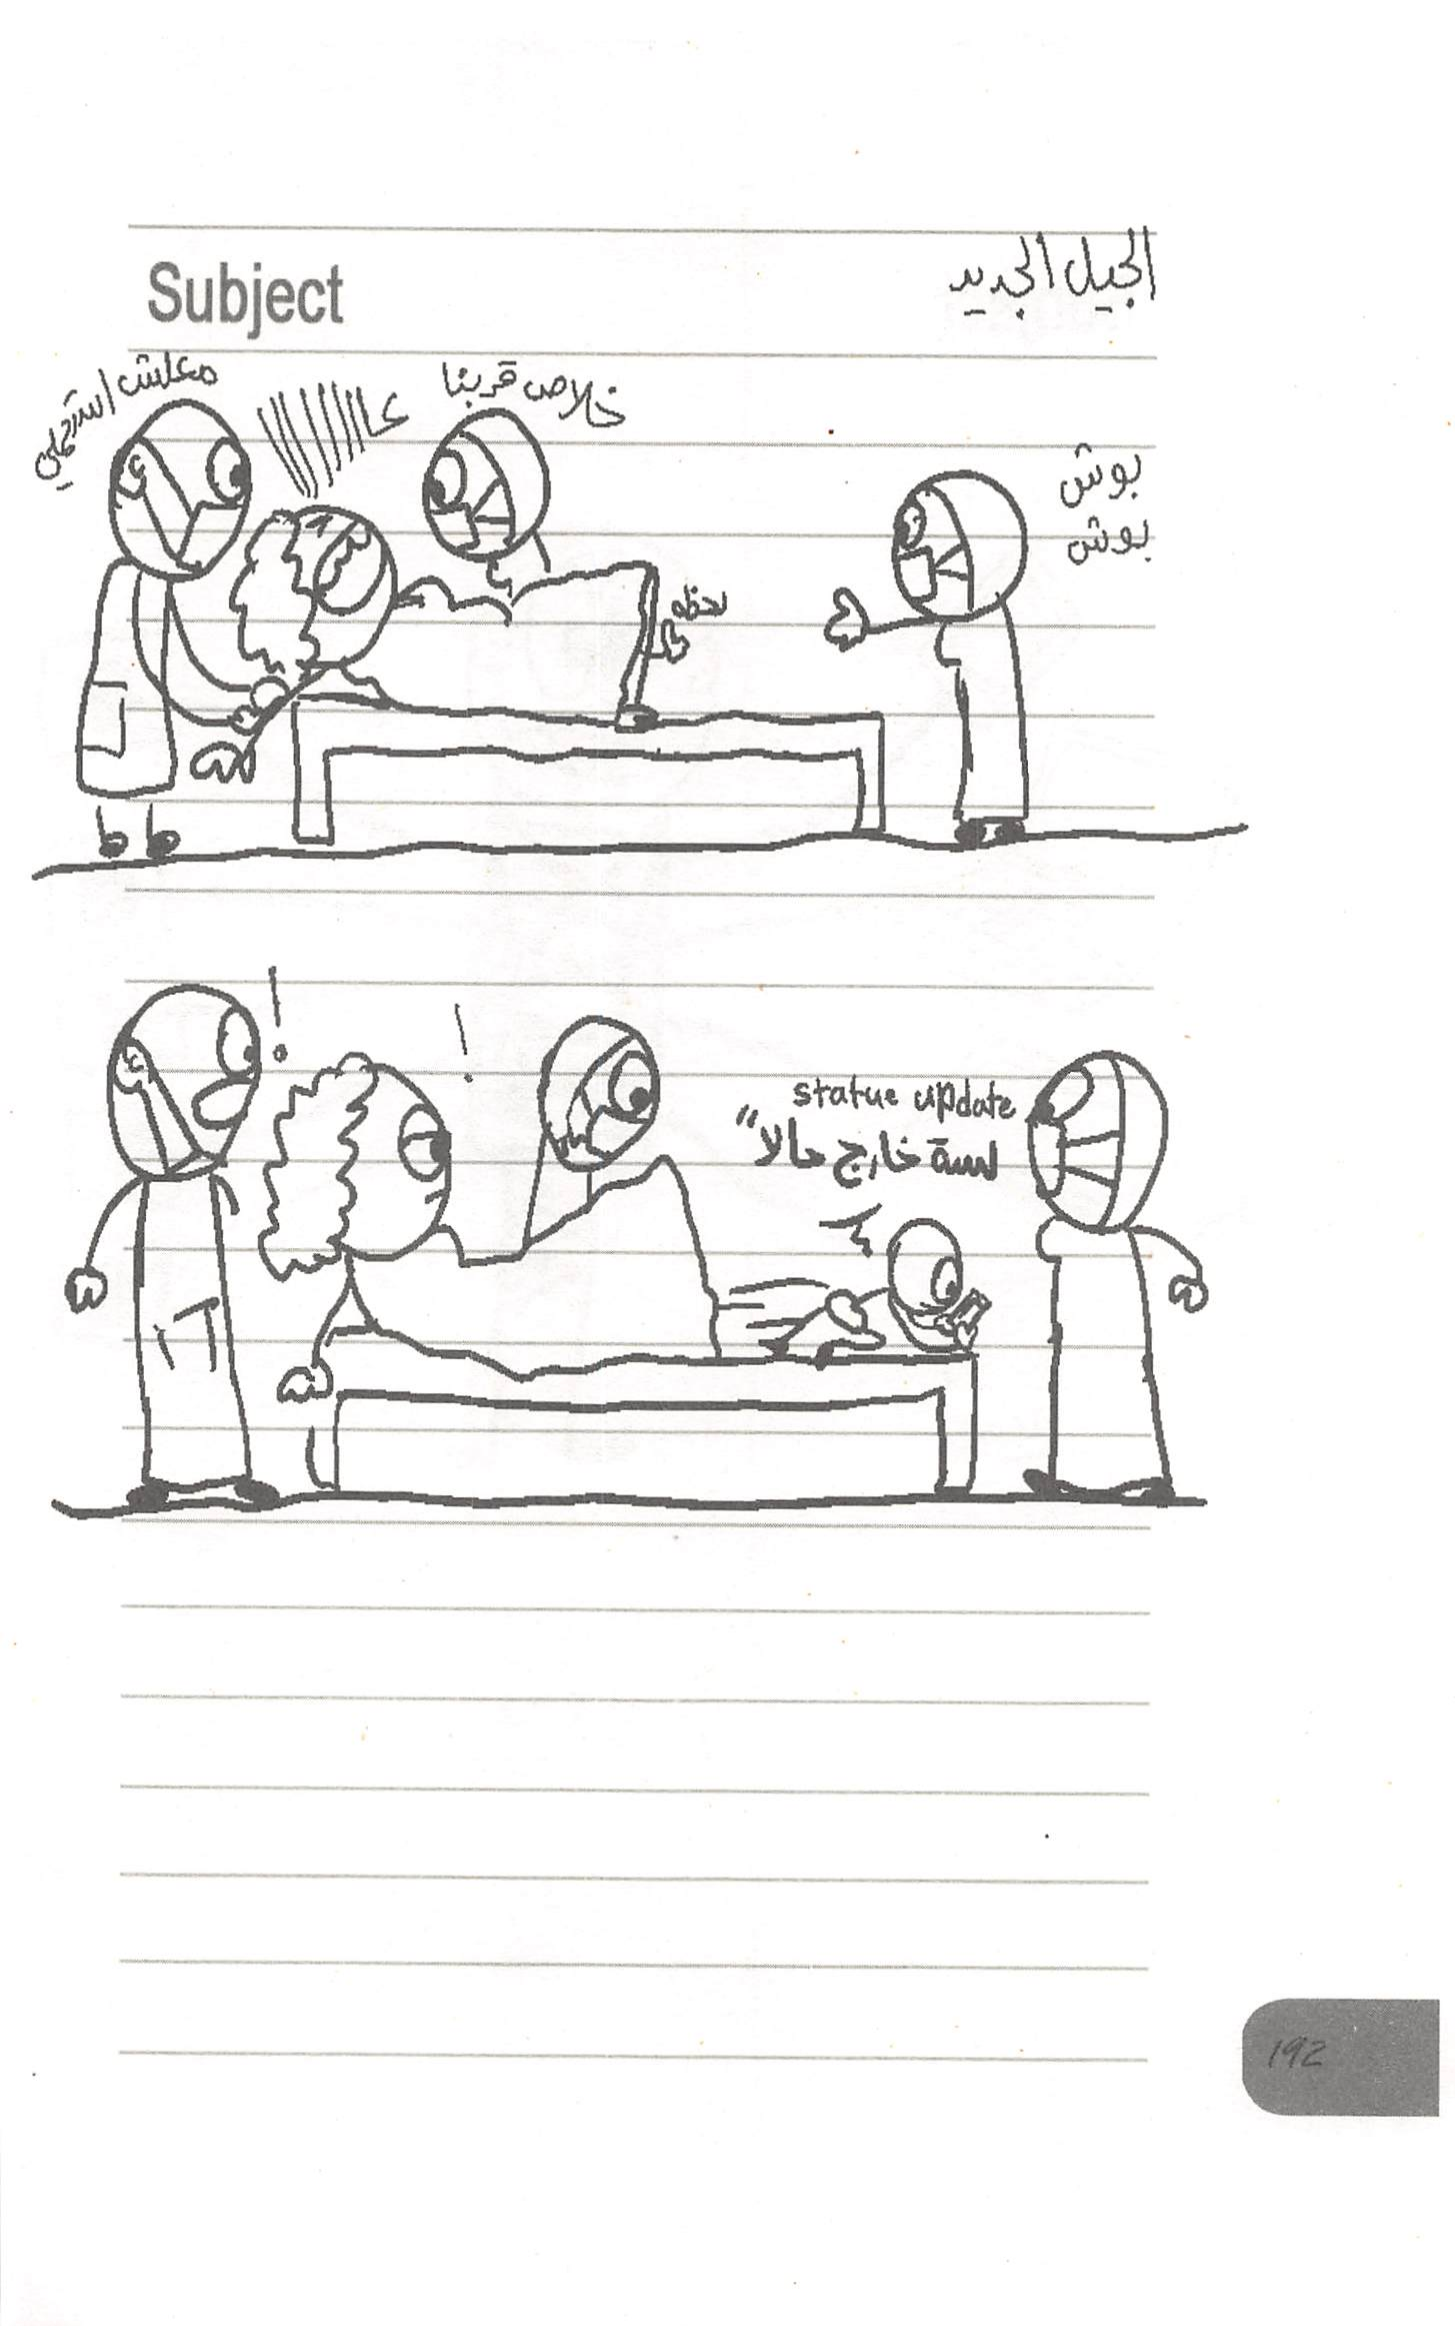 Subject
الجيل الجديد
معلش استحملي
عاااااااا
خلاص قربنا
بوش
بوش
لحظه
!
!
statue update
"لسة خارج حالا
192